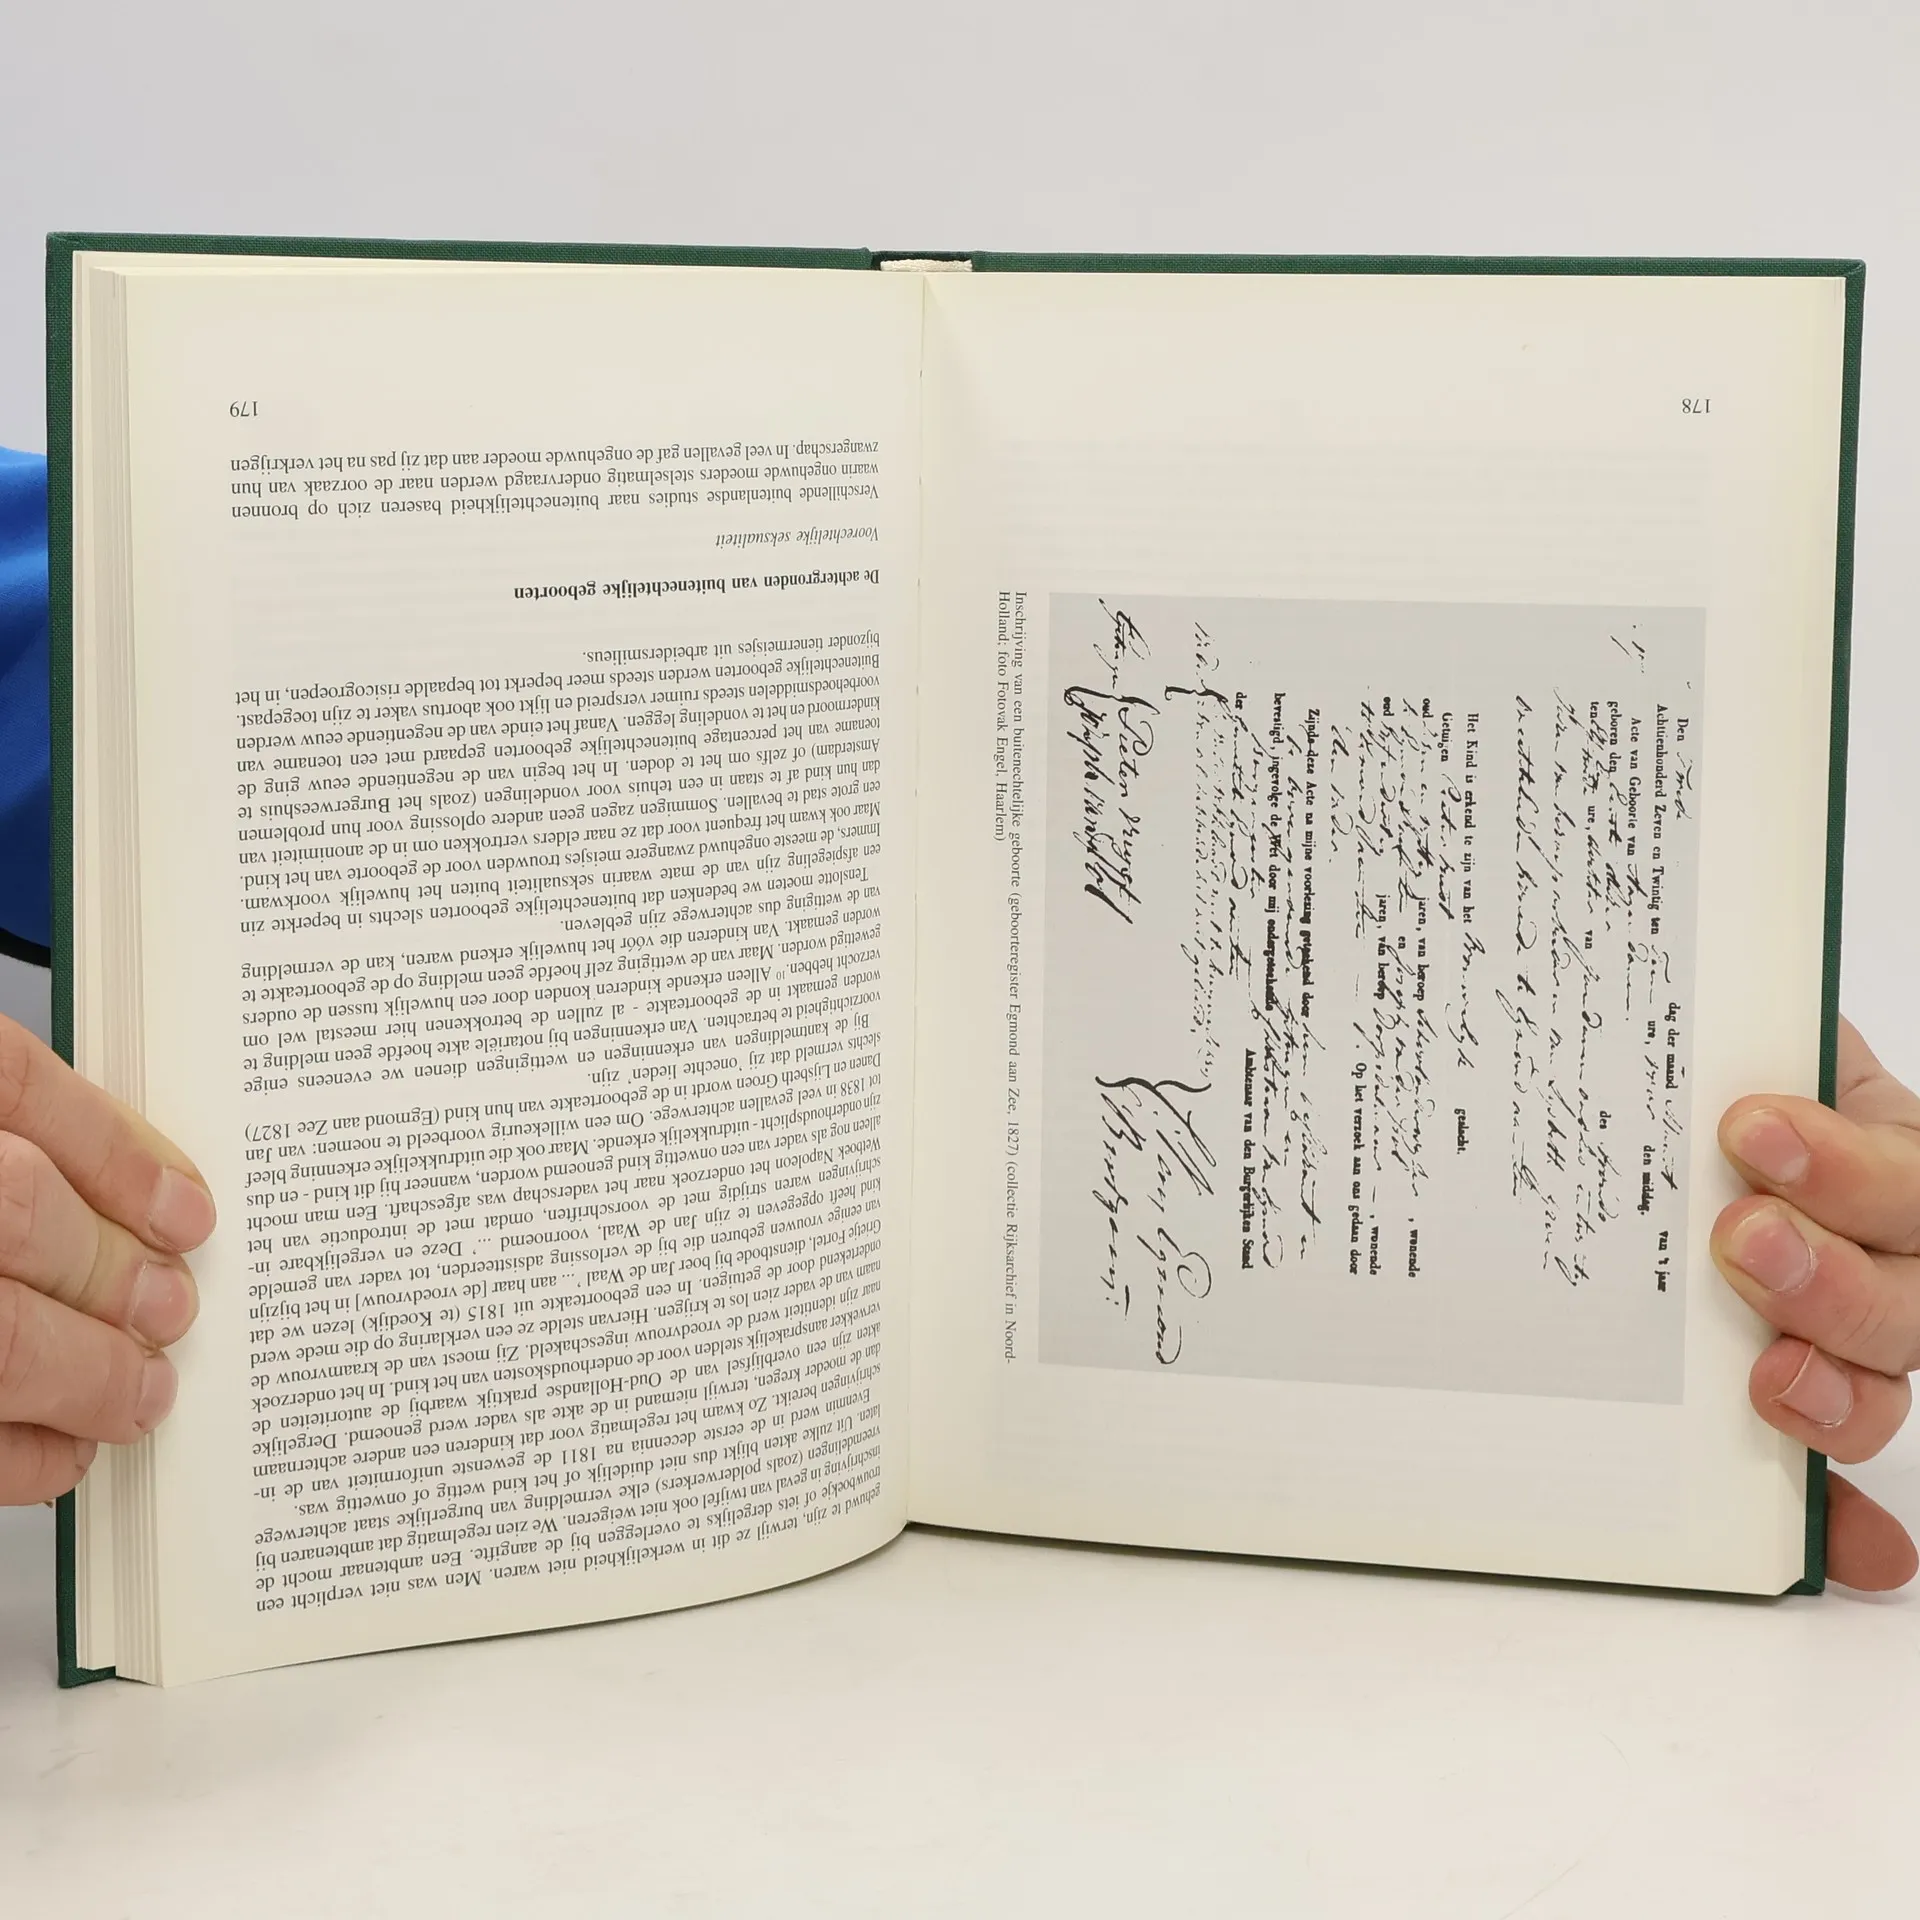 Den
dag der maand
van 't jaar
Achttienhonderd Zeven en Twintig ten
ure,
den middag.
Acte van Geboorte van
geboren den
des
ure,
van
Het Kind is erkend te zijn van het
geslacht.
Getuigen
oud
jaren, van beroep
, wonende
en
oud
jaren, van beroep
, wonende
Op het verzoek aan ons gedaan door
Zijnde deze Acte na mijne voorlezing geteekend door
bevestigd, ingevolge de Wet door mij ondergeteekende
der
Ambtenaar van den Burgerlijken Stand
Inschrijving van een buitenechtelijke geboorte (geboorteregister Egmond aan Zee, 1827) (collectie Rijksarchief in Noord-
Holland; foto Fotovak Engel, Haarlem)
178
gehuwd te zijn, terwijl ze dit in werkelijkheid niet waren. Men was niet verplicht een
trouwboekje of iets dergelijks te overleggen bij de aangifte. Een ambtenaar mocht de
inschrijving in geval van twijfel ook niet weigeren. We zien regelmatig dat ambtenaren bij
vreemdelingen (zoals polderwerkers) elke vermelding van burgerlijke staat achterwege
laten. Uit zulke akten blijkt dus niet duidelijk of het kind wettig of onwettig was.
Evenmin werd in de eerste decennia na 1811 de gewenste uniformiteit van de in-
schrijvingen bereikt. Zo kwam het regelmatig voor dat kinderen een andere achternaam
dan de moeder kregen, terwijl niemand in de akte als vader werd genoemd. Dergelijke
akten zijn een overblijfsel van de Oud-Hollandse praktijk waarbij de autoriteiten de
verwekker aansprakelijk stelden voor de onderhoudskosten van het kind. In het onderzoek
naar zijn identiteit werd de vroedvrouw ingeschakeld. Zij moest van de kraamvrouw de
naam van de vader zien los te krijgen. Hiervan stelde ze een verklaring op die mede werd
ondertekend door de getuigen. In een geboorteakte uit 1815 (te Koedijk) lezen we dat
Grietje Fortel, dienstbode bij boer Jan de Waal '... aan haar [de vroedvrouw] in het bijzijn
van eenige vrouwen geburen die bij de verlossing adsisteerden, tot vader van gemelde
kind heeft opgegeven te zijn Jan de Waal, voornoemd ...' Deze en vergelijkbare in-
schrijvingen waren strijdig met de voorschriften, omdat met de introductie van het
Wetboek Napoleon het onderzoek naar het vaderschap was afgeschaft. Een man mocht
alleen nog als vader van een onwettig kind genoemd worden, wanneer hij dit kind - en dus
zijn onderhoudsplicht - uitdrukkelijk erkende. Maar ook die uitdrukkelijke erkenning bleef
tot 1838 in veel gevallen achterwege. Om een willekeurig voorbeeld te noemen: van Jan
Danen en Lijsbeth Groen wordt in de geboorteakte van hun kind (Egmond aan Zee 1827)
slechts vermeld dat zij 'onechte lieden' zijn.
Bij de kantmeldingen van erkenningen en wettigingen dienen we eveneens enige
voorzichtigheid te betrachten. Van erkenningen bij notariële akte hoefde geen melding te
worden gemaakt in de geboorteakte - al zullen de betrokkenen hier meestal wel om
verzocht hebben.10 Alleen erkende kinderen konden door een huwelijk tussen de ouders
gewettigd worden. Maar van de wettiging zelf hoefde geen melding op de geboorteakte te
worden gemaakt. Van kinderen die vóór het huwelijk erkend waren, kan de vermelding
van de wettiging dus achterwege zijn gebleven.
Tenslotte moeten we bedenken dat buitenechtelijke geboorten slechts in beperkte zin
een afspiegeling zijn van de mate waarin seksualiteit buiten het huwelijk voorkwam.
Immers, de meeste ongehuwd zwangere meisjes trouwden voor de geboorte van het kind.
Maar ook kwam het frequent voor dat ze naar elders vertrokken om in de anonimiteit van
een grote stad te bevallen. Sommigen zagen geen andere oplossing voor hun problemen
dan hun kind af te staan in een tehuis voor vondelingen (zoals het Burgerweeshuis te
Amsterdam) of zelfs om het te doden. In het begin van de negentiende eeuw ging de
toename van het percentage buitenechtelijke geboorten gepaard met een toename van
kindermoord en het te vondeling leggen. Vanaf het einde van de negentiende eeuw werden
voorbehoedsmiddelen steeds ruimer verspreid en lijkt ook abortus vaker te zijn toegepast.
Buitenechtelijke geboorten werden steeds meer beperkt tot bepaalde risicogroepen, in het
bijzonder tienermeisjes uit arbeidersmilieus.
De achtergronden van buitenechtelijke geboorten
Voorechtelijke seksualiteit
Verschillende buitenlandse studies naar buitenechtelijkheid baseren zich op bronnen
waarin ongehuwde moeders stelselmatig ondervraagd werden naar de oorzaak van hun
zwangerschap. In veel gevallen gaf de ongehuwde moeder aan dat zij pas na het verkrijgen
179